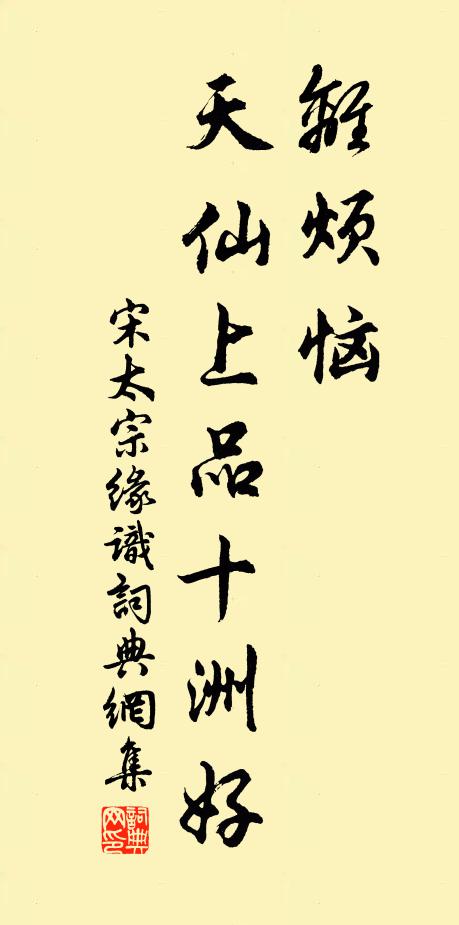 離烦恼
天仙上品十洲好
宋太宗缘識詞典網集
詞典网印